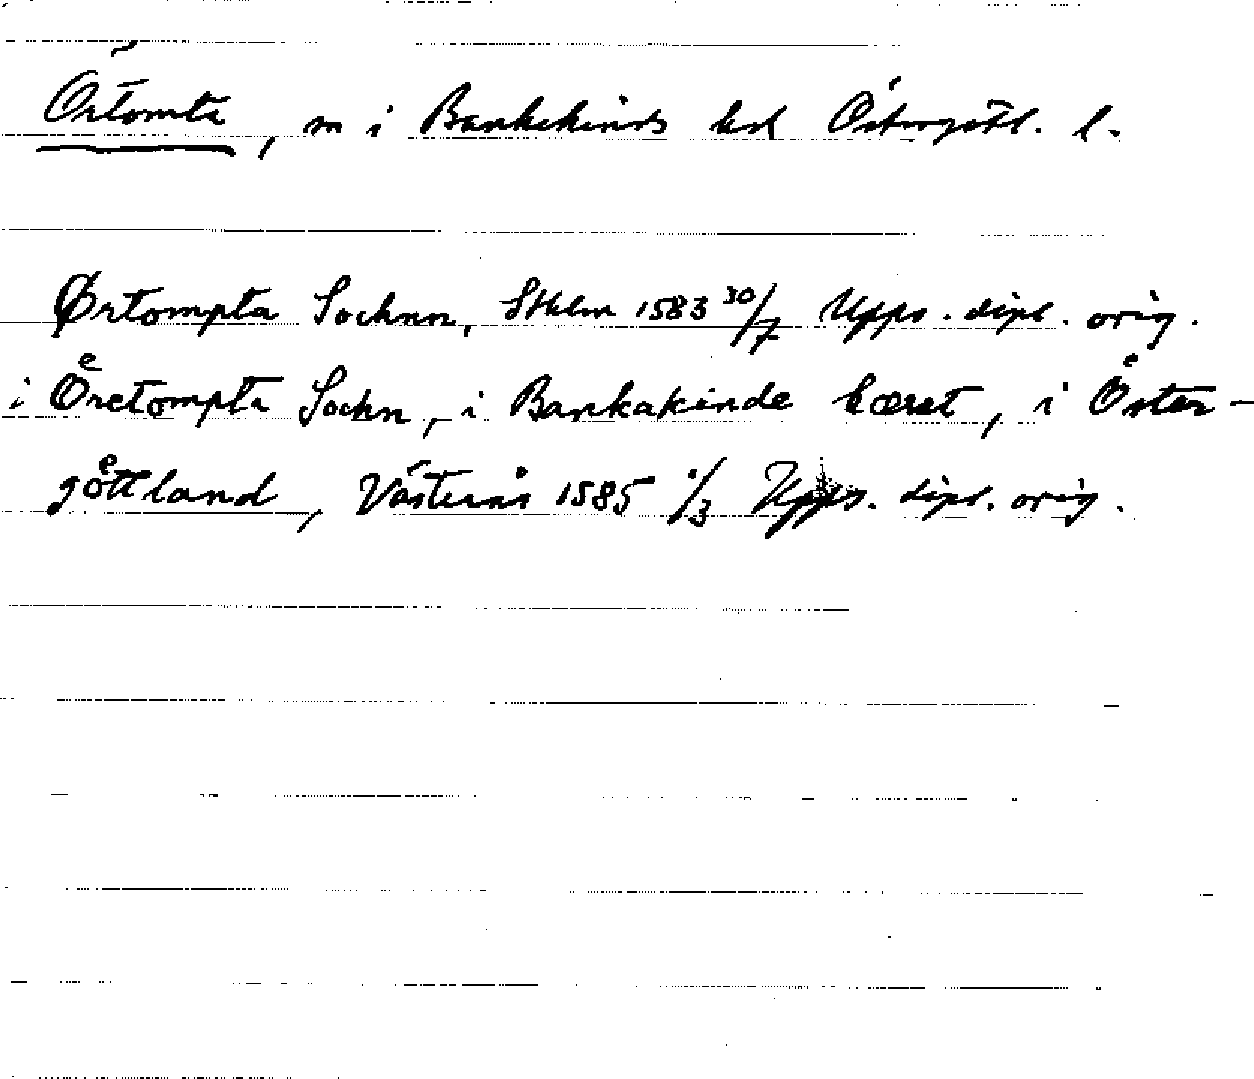 Örtomta, sn i Bankekinds hd Östergötl. l.
Ørtompta Sochnn, Sthlm 1583 30/7 Upps. dipl. orig.
i Oͤretompta Sochn, i Bankakinde hæret, i Oͤster-
goͤttland, Västerås 1585 1/3 Upps. dipl. orig.